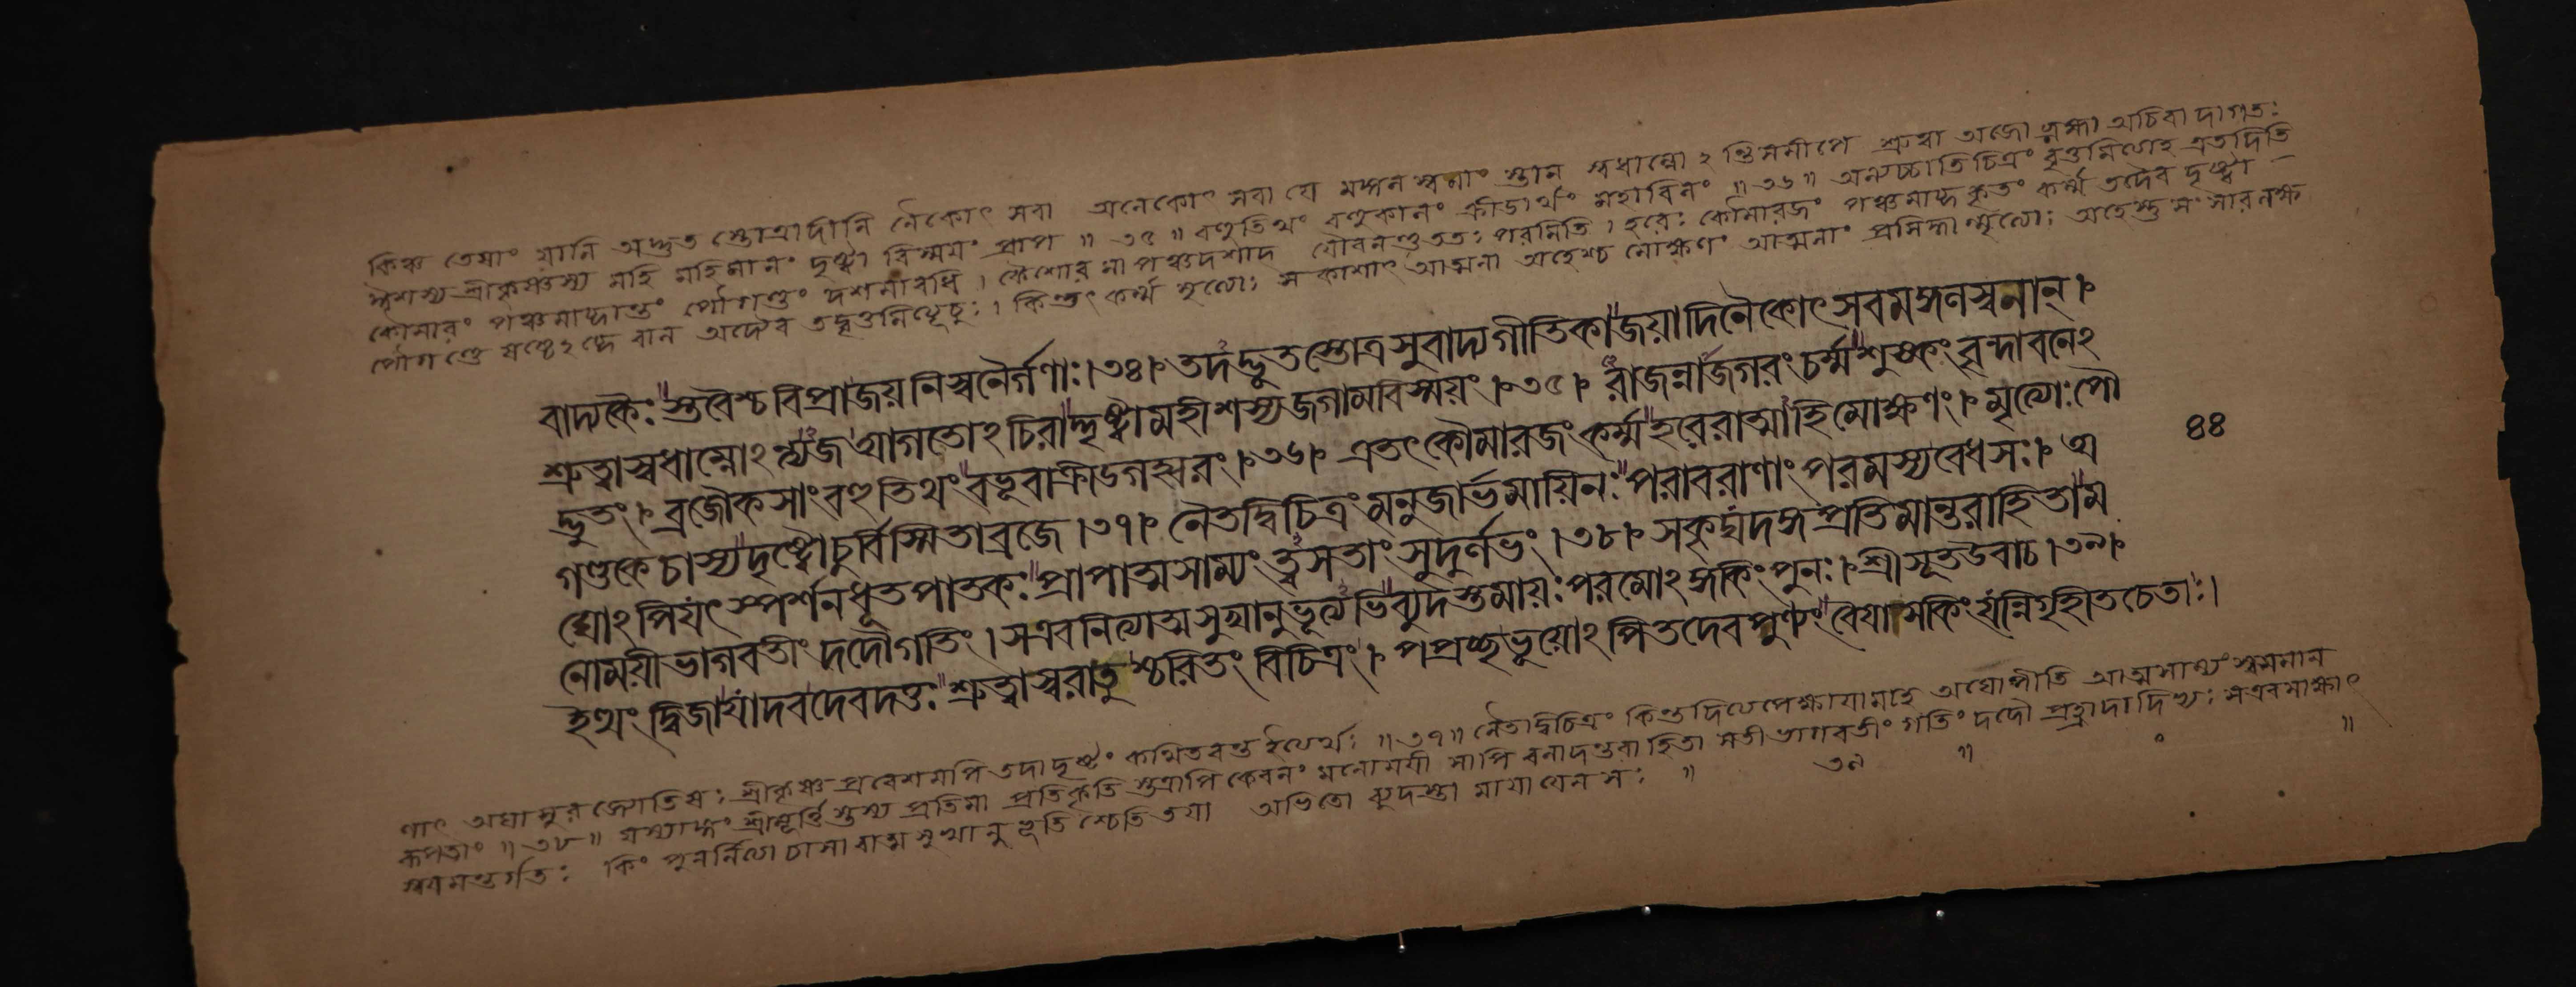 কিঞ্চ তেষাং যানি অদ্ভুত স্তোত্রাদীনি নৈকোৎসবা অনেকোৎসবা যে মঙ্গলস্বনাঃ স্তান স্বধাম্নোঽন্তিসমীপে শ্রুত্বা অজো ব্রহ্মা অচিরাদাগতঃ
ঈশস্য শ্রীকৃষ্ণস্য মহি মহিমানং দৃষ্ট্বা বিস্ময়ং প্রাপ ॥ ৩৫ ॥ বহুতিথং বহুকালং ক্রীডার্থং মহাবিলং ॥ ৩৬ ॥ অন্যচ্চাতিচিত্রং বৃত্তমিত্যাহ এতদিতি
কৌমারং পঞ্চমাব্দান্তং পৌগণ্ডং দশমাবধি । কৈশোরমাপঞ্চদশাদ যৌবনন্তু ততঃ পরমিতি । হরেঃ কৌমারজং পঞ্চমাব্দ কৃতং কর্ম্ম তদৈব দৃষ্ট্বা
পৌগণ্ডে ষষ্ঠেঽব্দে বাল অদ্যৈব তদ্বৃত্তমিত্যূচুঃ । কিন্তৎ কর্ম্ম মৃত্যোঃ সকাশাৎ আত্মনা অহেশ্চ মোক্ষণং আত্মনাং প্রসিদ্ধান্মৃত্যোঃ অহেস্তু সংসারলক্ষ
বাদ্যকৈঃ স্তবৈশ্চ বিপ্রাজয়নিস্বনৈর্গণাঃ ।৩৪। তদদ্ভুতস্তোত্রসুবাদ্যগীতিকাজয়াদিনৈকোৎসবমঙ্গলস্বনান্ ।
শ্রুত্বাস্বধাম্নোঽন্ত্যজআগতোঽচিরাদ্দৃষ্ট্বামহীশস্যজগামবিস্ময়ং ।৩৫। রাজন্নাজগরংচর্ম্মশুষ্কংবৃন্দাবনেঽ
দ্ভুতং । ব্রজৌকসাংবহুতিথংবভূবাক্রীডগহ্বরং ।৩৬। এতৎকৌমারজংকর্ম্মহরেরাত্মাহিমোক্ষণং । মৃত্যোঃপৌ
গণ্ডকেচাস্যদৃষ্ট্বোচুর্বিস্মিতাব্রজে ।৩৭। নৈতদ্বিচিত্রংমনুজার্ভমায়িনঃপরাবরাণাংপরমস্যবেধসঃ । অ
ঘোঽপিযৎস্পর্শনধূতপাতকঃপ্রাপাত্মসাম্যংত্বসতাংসুদুর্লভং ।৩৮। সকৃদ্যদঙ্গপ্রতিমান্তরাহিতাম
নোময়ীভাগবতীংদদৌগতিং । সএবনিত্যাত্মসুখানুভূত্যভিব্যুদস্তমায়ঃপরমোঽঙ্গকিংপুনঃ । শ্রীসূতউবাচ ।৩৯।
ইত্থংদ্বিজাযাদবদেবদত্তঃশ্রুত্বাস্বরাতুশ্চরিতংবিচিত্রং । পপ্রচ্ছভূয়োঽপিতদেবপুণ্যংবৈযাসকিংযন্নিগৃহীতচেতাঃ ।
৪৪
ণাৎ অঘাসুরজ্যোতিষঃ শ্রীকৃষ্ণপ্রবেশমপি তদা দৃষ্টং কথিতবন্ত ইত্যর্থঃ ॥ ৩৭ ॥ নৈতদ্বিচিত্রং কিন্তদিত্যপেক্ষাযামাহ অঘোপীতি আত্মসাম্যং স্বসমান
রূপতাং ॥ ৩৮ ॥ যস্যাঙ্গং শ্রীমূর্ত্তিস্তস্য প্রতিমা প্রতিকৃতি স্তত্রাপি কেবলং মনোময়ী সাপি বলাদন্তরাহিতা সতী ভাগবতীং গতিং দদৌ প্রহ্লাদাদিভ্যঃ সএবসাক্ষাৎ
স্বয়মন্তর্গতিঃ কিং পুনর্নিত্যা চাসাবাত্মসুখানুভূতিশ্চেতি তয়া অভিতো ব্যুদস্তা মায়া যেন সঃ ॥ ৩৯ ॥